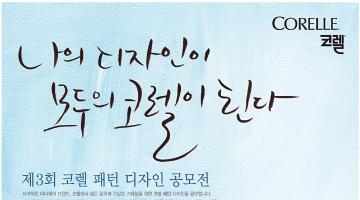 CORELLE
코렐
나의 디자인이
모두의 코렐이 된다
제3회 코렐 패턴 디자인 공모전